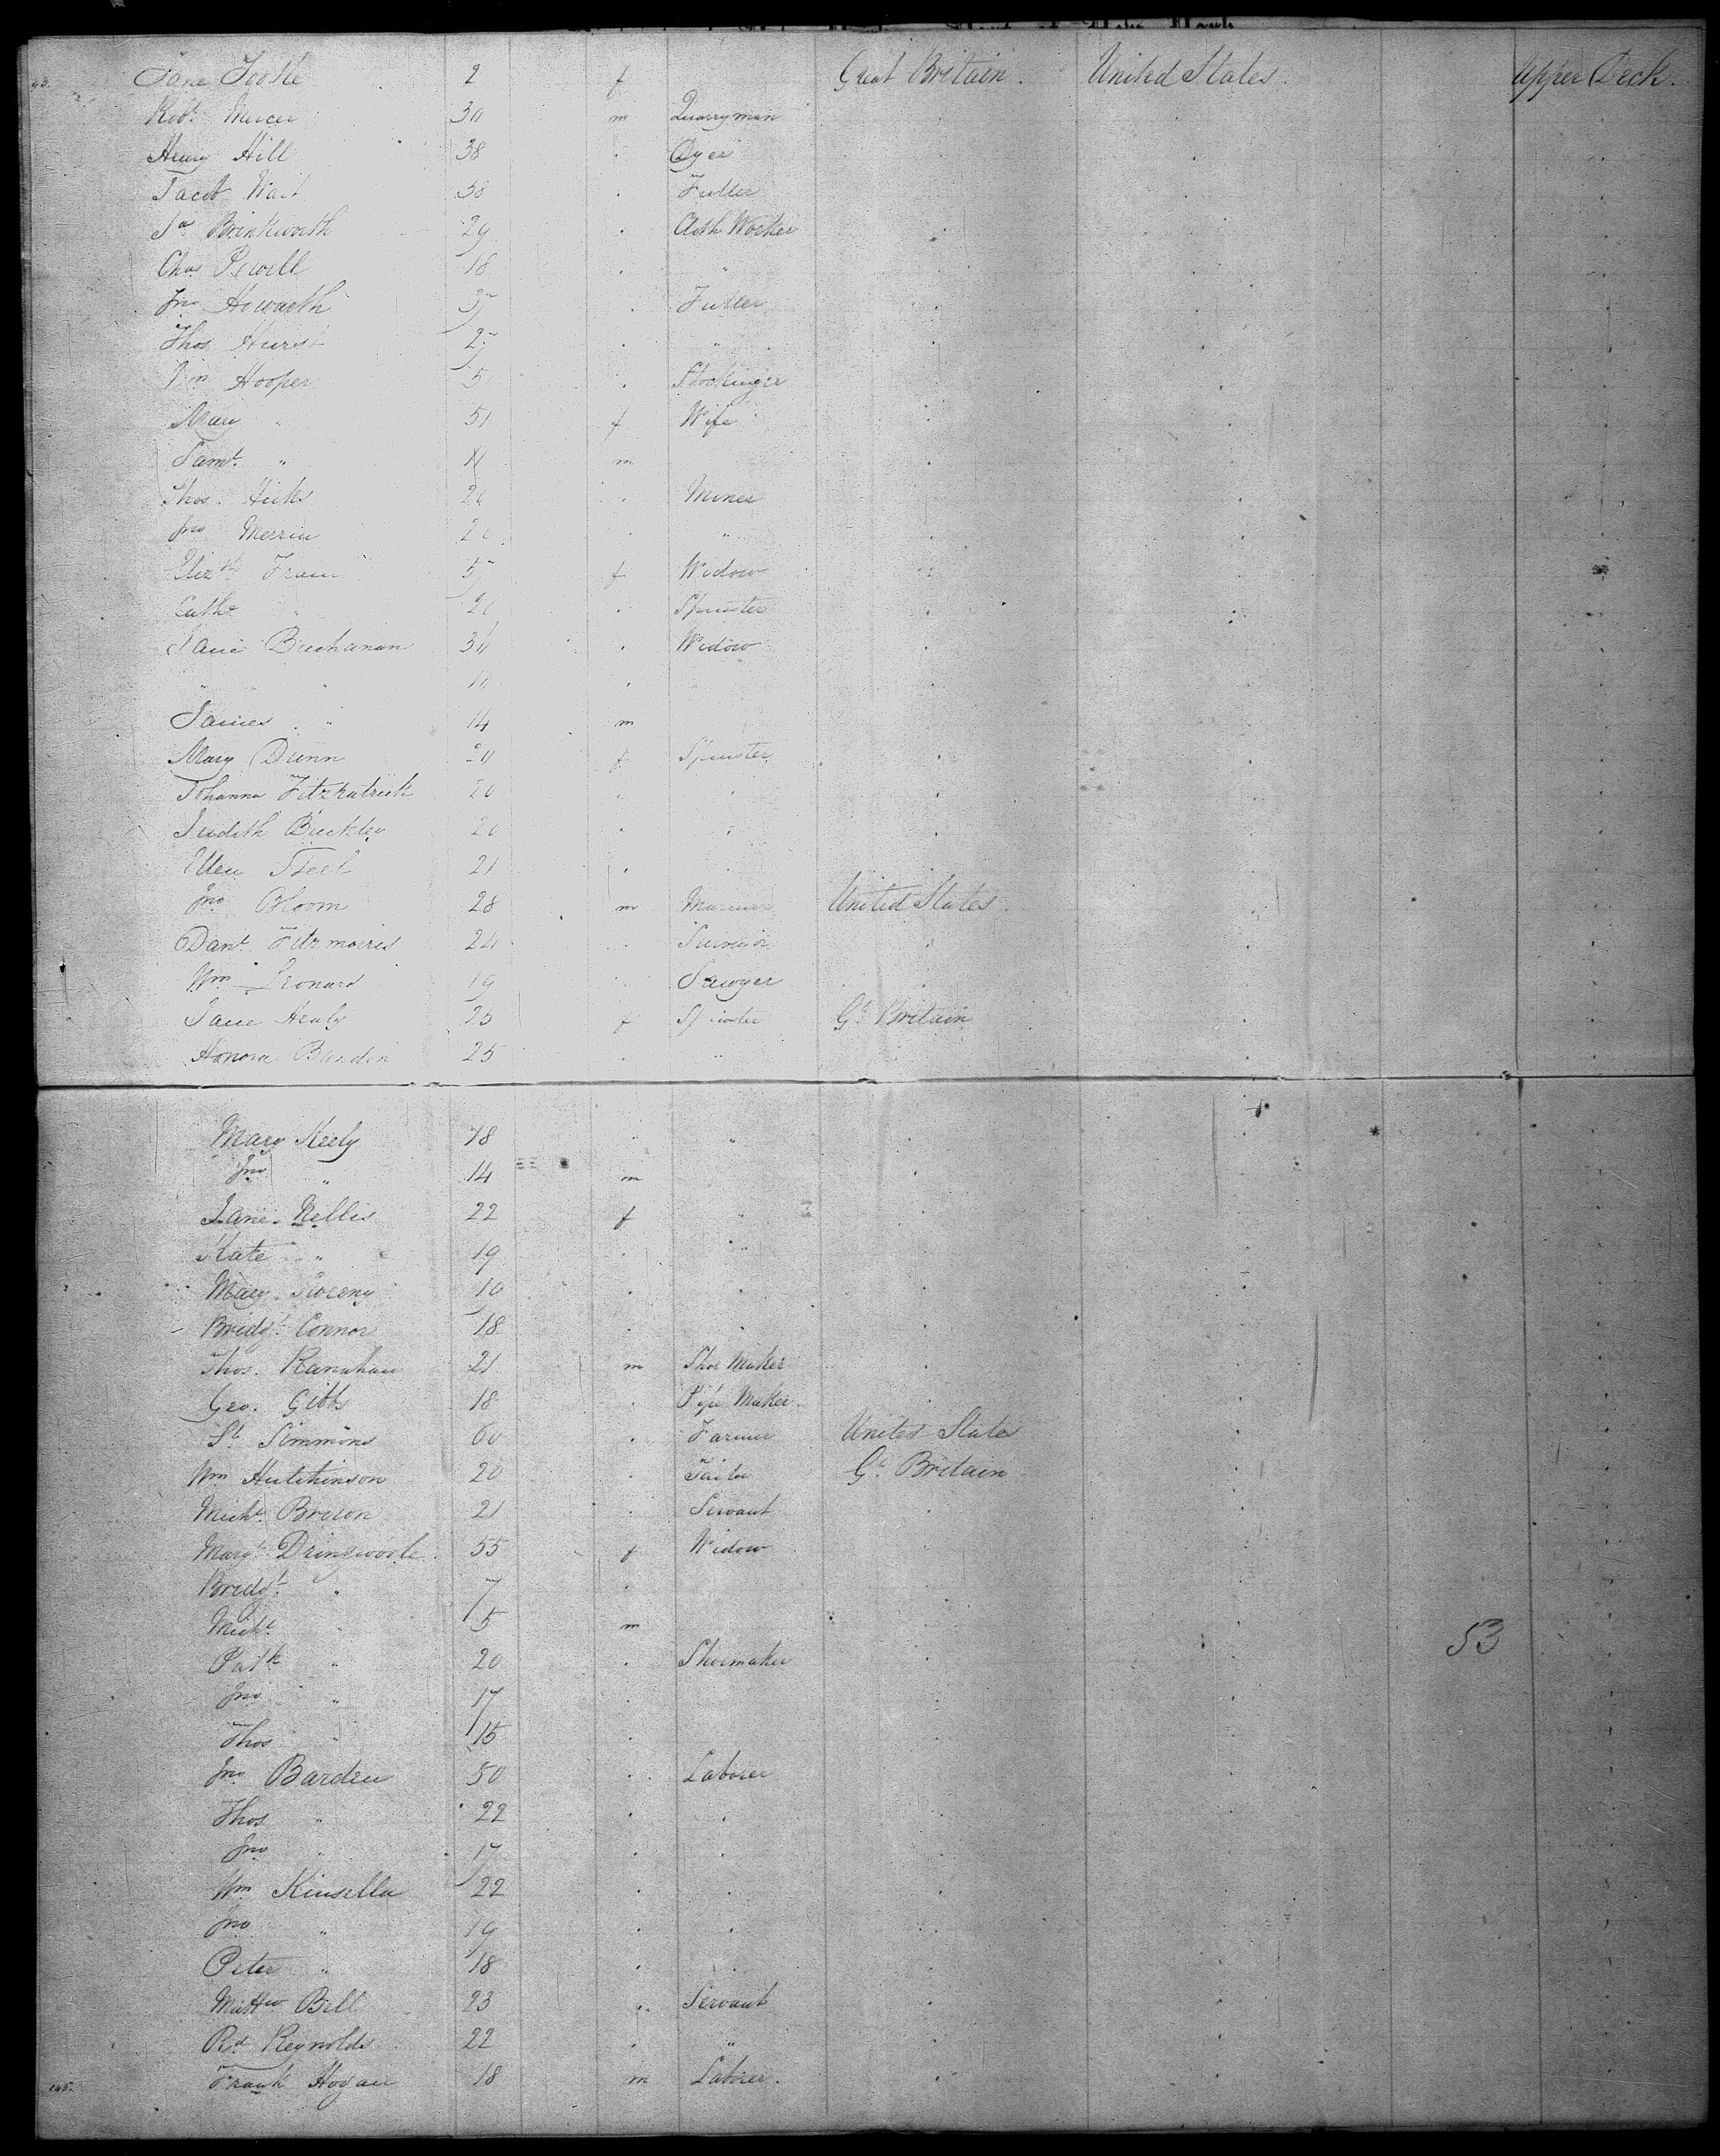 93. Jane Tootle 2 f Great Britain. United States. Upper Deck.
Robt. Mercer 30 m Quarryman
Henry Hill 38 Dyer
Jacob Wait 38 Fuller
Jas Brinkworth 29 Cloth Worker
Chas Powell 18 "
Jno Howarth 37 Fuller
Thos Hurst 27 "
Wm Hooper Stockinger
Mary " 51 f Wife
Saml. " 11 m
Thos. Hicks Miner
Jno Merrin "
Elizth 57 f Widow
Cath Spinster
Jane Buchanan Widow
" "
James " 14 m
Mary Dunn f Spinster
Johanna Fitzpatrick 20 "
Judith Buckley 20 "
Ellen Steel 21
Jno Bloom 28 m United States
Danl. Fitzmorris 24
Wm Leonard 19 Sawyer
Jane Healy 25 f Spinster Gt. Britain
Honora Barden 25 "
Mary Keely 18 "
Jno " 14 m
Jane Nellis 22 f "
Kate " 19 "
Mary 10
Bridgt. Connor 18 "
Thos. Ranahan 21 m Shoe Maker
Geo. Gibbs 18 Pipe Maker
St. Simmons 60 Farmer United States
Wm Hutchinson 20 Tailor Gt. Britain
Michl. 21 Servant
Margt. 55 f Widow
Bridgt. " 7
Michl. " 5 m 53
Patk " 20 Shoemaker
Jno " 17
Thos " 15
Jno Barden 50 Laborer
Thos " 22
Jno " 17
Wm Kinsella 22
Jno " 19
Peter " 18
Mattw Bell 23 Servant
Rd Reynolds 22 "
145. Frank Hogan 18 m Laborer.